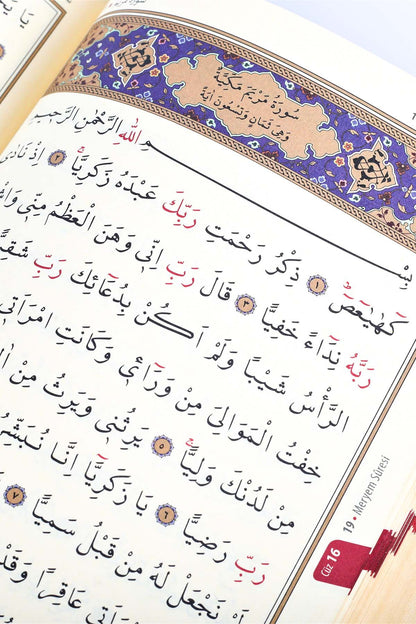 سُورَةُ مَرْيَمَ مَكِّيَّةٌ
وَهِيَ ثَمَانٍ وَتِسْعُونَ اٰيَةً
بِسْمِ اللّٰهِ الرَّحْمٰنِ الرَّحِيمِ
كٓهٰيٰعٓصٓ ١ ذِكْرُ رَحْمَتِ رَبِّكَ عَبْدَهُ زَكَرِيَّا ٢ اِذْ نَادٰى
رَبَّهُ نِدَٓاءً خَفِيًّا ٣ قَالَ رَبِّ اِنّ۪ي وَهَنَ الْعَظْمُ مِنّ۪ي
الرَّأْسُ شَيْبًا وَلَمْ اَكُنْ بِدُعَٓائِكَ رَبِّ
خِفْتُ الْمَوَالِيَ مِنْ وَرَٓاء۪ي وَكَانَتِ امْرَاَت۪ي
مِنْ لَدُنْكَ وَلِيًّا ٥ يَرِثُن۪ي وَيَرِثُ مِنْ
رَبِّ رَضِيًّا ٦ يَا زَكَرِيَّٓا اِنَّا
نَجْعَلْ لَهُ مِنْ قَبْلُ سَمِيًّا ٧
عَاقِرًا وَقَدْ
Cüz 16
19 • Meryem Sûresi